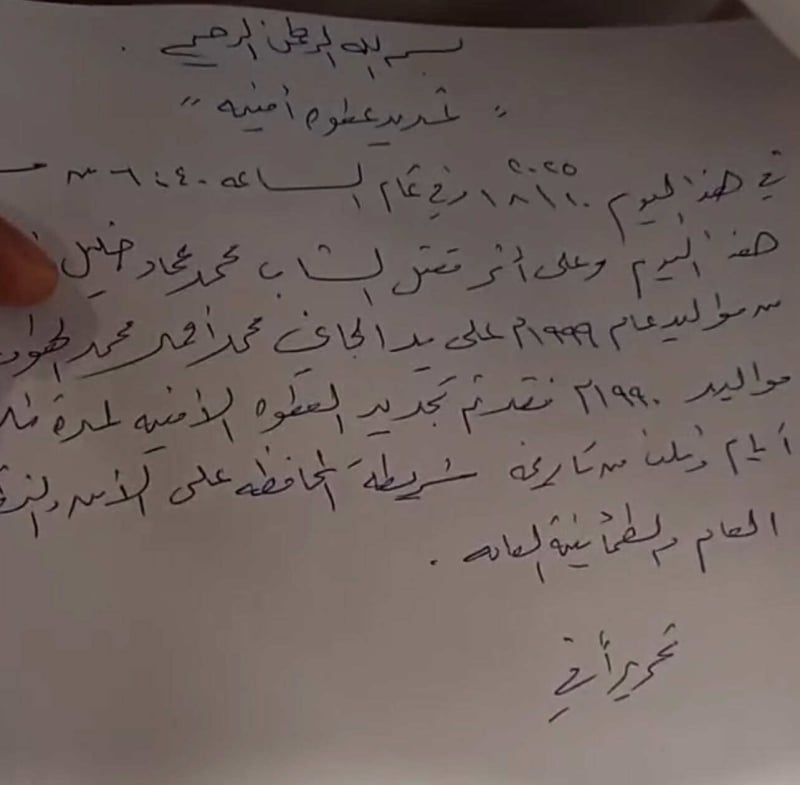 بسم الله الرحمن الرحيم .
" تمديد عطوه أمنيه "
في هذا اليوم ٢٠٢٥/٨/١٠ وفي تمام الساعه ٦:٤٠ من
هذا اليوم وعلى أثر مقتل الشاب محمد عماد خليل
من مواليد عام ١٩٩٩م على يد الجاني محمد أحمد محمد
مواليد ١٩٩٠م فقد تم تجديد العطوه الأمنيه لمدة
أيام وثلث من تاريخه شريطة المحافظه على الأمن
العام والطمأنينة العامه .
تحريراً في